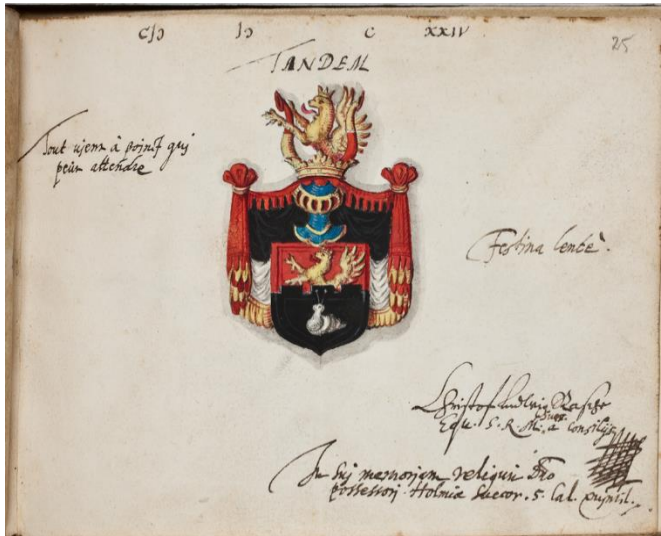 CIƆ IƆ C XXIV
25
TANDEM
Tout vient à poinct qui
peur attendre
Festina lentè.
Christof Ludwig Rasche
Equ. S. R. M. Suec. a Consilijs
In suj memoriam reliquit
possessori Holmiæ Suecor. 5. Cal.